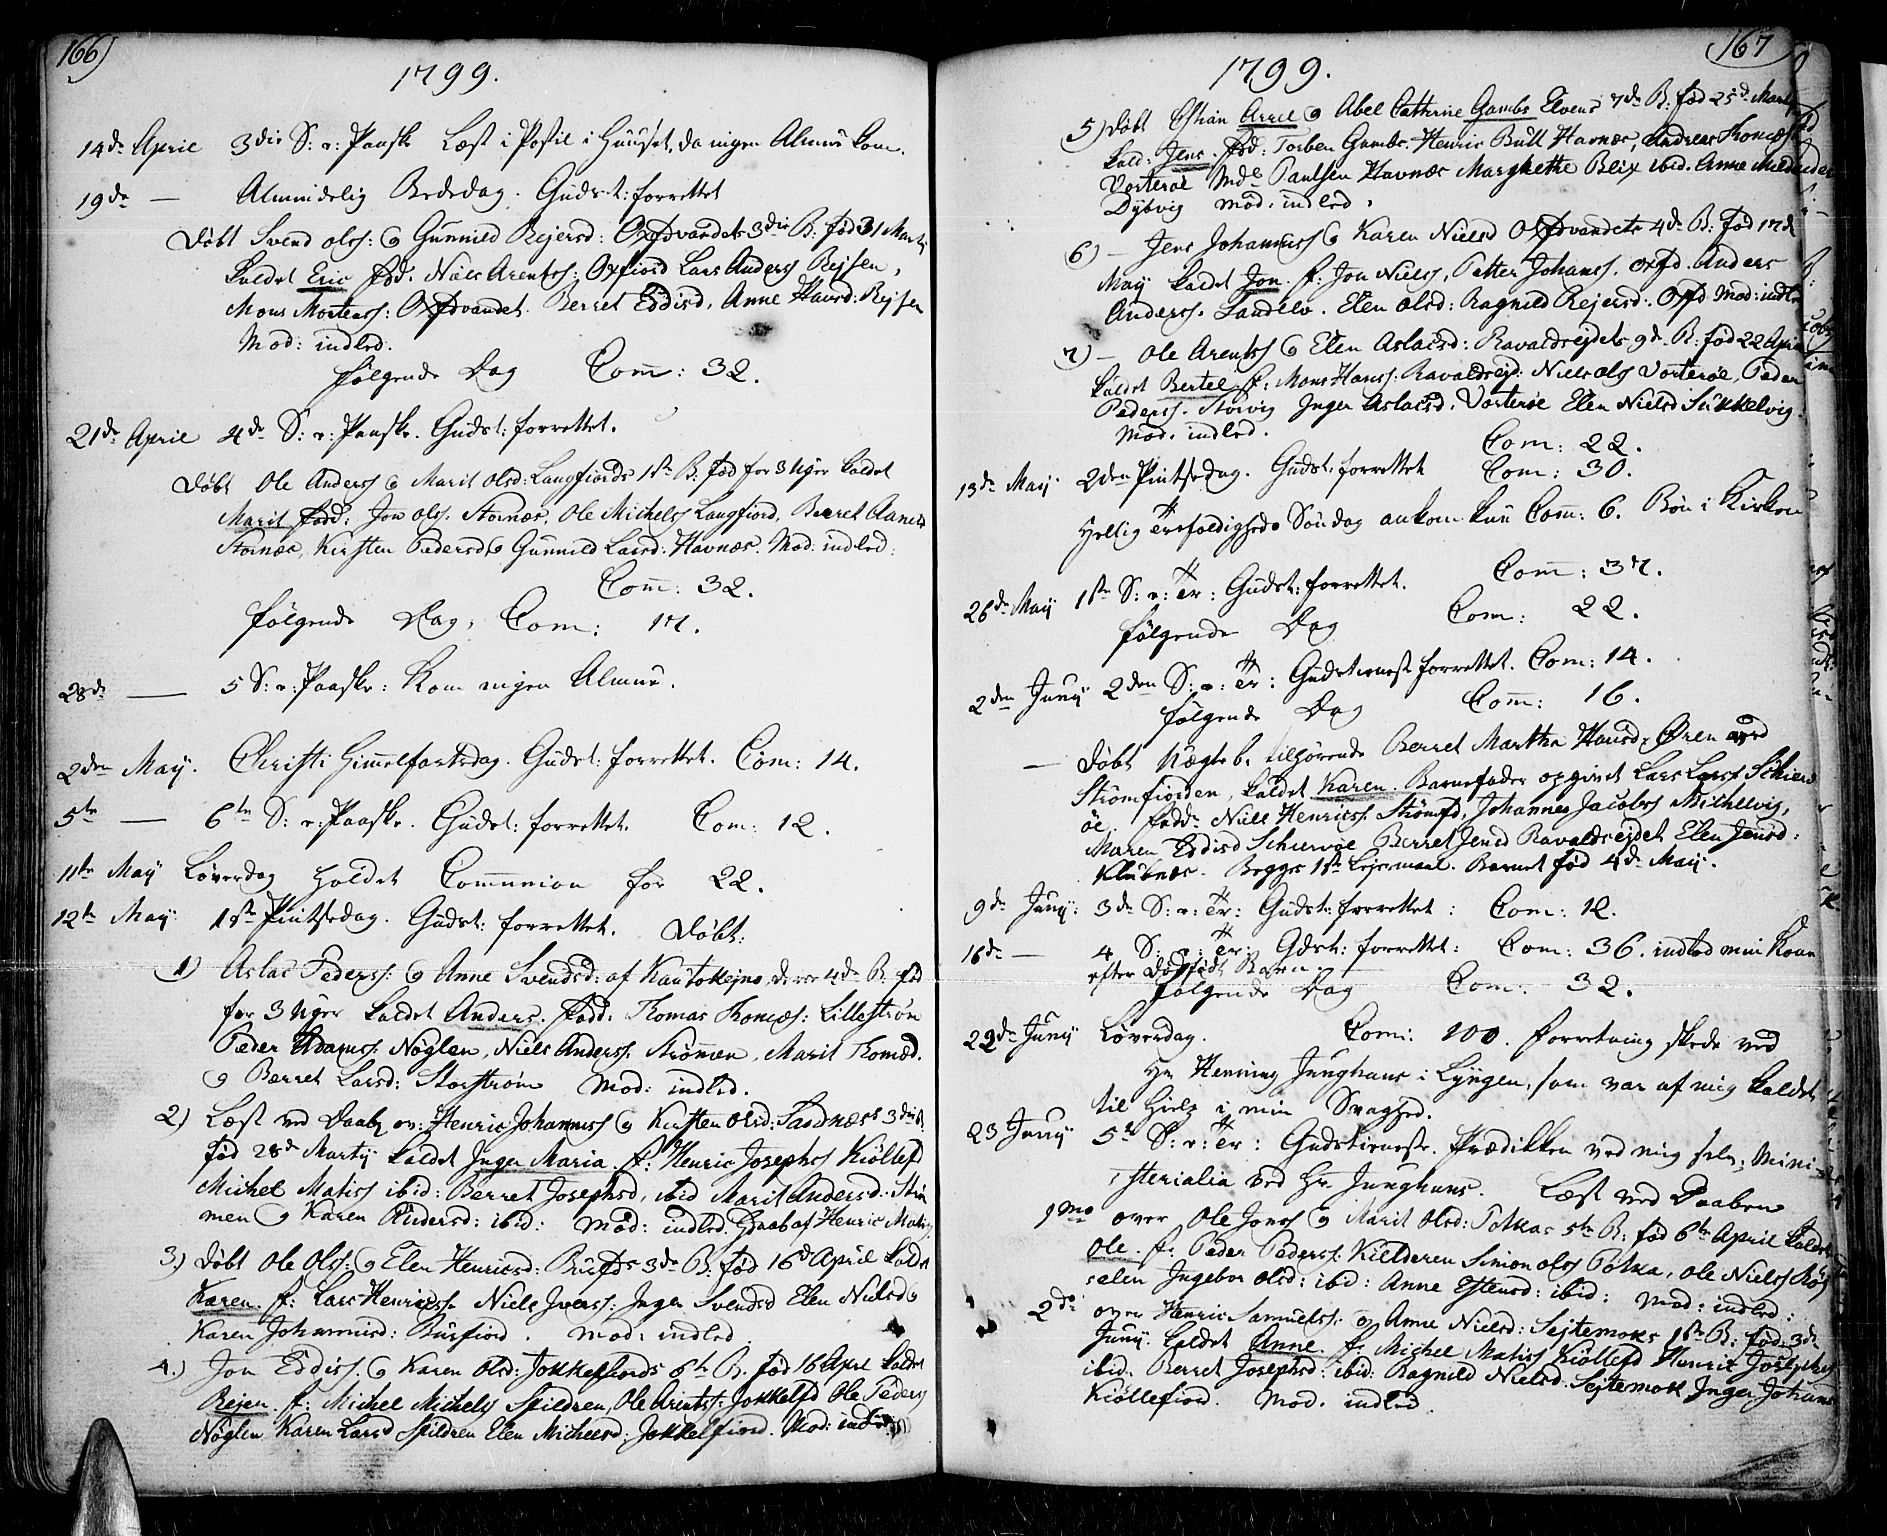 166)
1799.
14de April 3die S: e: Paaske Læst i Postil i Huuset, da ingen Almue kom.
19de — Almindelig Bededag. Gudst: forrettet
Døbt Svend Ols: & Gunnild Rejersd: Oxfdvandets 3die B: fød 31 Martij
kaldet Eric fad. Niels Arentss: Oxfiord Lars Anders Rejsen,
Mons Mortenss: Oxfdvandet. Berret Eddisd, Anne Hansd: Rejsen
Mod: indled.
følgende Dag Com: 32.
21de April 4de S: e: Paaske. Gudst: forrettet.
Døbt Ole Anderss & Marit Olsd: Langfiords 1ste B. fød for 3 Uger kaldet
Marit fadd: Jon Ols. Stornæs, Ole Michelss Langfiord, Berret
Stornæs, Kirsten Pedersd & Gunnild Larsd: Havnæs. Mod: indled:
Com: 32.
følgende Dag, Com: 17.
28de — 5 S: e: Paaske: Kom ingen Almue.
2den May. Christi Himmelfartsdag. Gudst: forrettet. Com: 14.
5te — 6te S: e: Paaske. Gudst: forrettet. Com: 12.
11te May Løverdag holdet Communion for 22.
12te May: 1ste Pintsedag. Gudst: forrettet. Døbt:
1) Aslac Pederss: & Anne Svendsd: af Kautokejno, deres 4de B. fød
for 3 Uger kaldet Anders. fadd: Thomas Thomæs: Lillestrøm
Peder Adamss. Nøglen, Niels Anderss. Strømmen, Marit Thomæd.
& Berret Larsd: Storstrøm Mod: indled.
2) Læst ved Daab ov: Henric Johanness & Kirsten Olsd: Sandnæs 3die B.
fød 28de Martij kaldet Inger Maria. f: Henric Josephss Kiøllefd
Michel Matiss ibid: Berret Josephsd, ibid Marit Andersd: Strøm
men & Karen Andersd: ibid: Mod: indled. Daab af Henric Matiss
3) Døbt Ole Ols: & Elen Henricsd: Burfds 3de B: fød 16d April kaldet
Karen. f: Lars Henricss. Niels Iverss: Inger Svendsd Elen Nielsd &
Karen Johannisd: Burfiord. Mod: indled.
4.) Jon Eddiss. & Karen Olsd: Jokkelfiords 6te B. fød 16 April kaldet
Rejer. f: Michel Michelss Spildren, Ole Arentss: Jokkelfd Ole Pederss
Nøglen Karen Larsd Spildren Elen Michelsd: Jokkelfiord. Mod: indled
167
1799.
5) Døbt Chrian Arild & Abel Cathrine Gambs Elvens 7de B. fød 25d Martij
kald: Jens. fad: Torben Gambs. Henric Bull Havnæs, Andreas Thomæs
Vorterøe Mdl Paulsen Havnæs Margrethe Blix ibid. Anne
Dybvig Mod: indled.
6) — Jens Johanness & Karen Nielsd Oxfdvandets 4de B: fød 17d
May kaldet Jon f: Jon Nielss, Petter Johanss. Oxfd. Anders
Anderss. Sandelv. Elen Olsd: Ragnild Rejersd: Oxfd Mod: indled
7) — Ole Arentss & Elen Aslacsd: Ravaldsejdets 9de B: fød 22 April
kaldet Bertel f: Mons Hanss: Ravaldsejd: Niels Ols Vorterøe, Peder
Pederss. Storvig Inger Aslacsd: Vorterøe Elen Nielsd Sukkelvig.
Mod: indled.
Com: 22.
13de May 2den Pintsedag. Gudst: forrettet Com: 30.
Hellig Trefoldigheds Søndag ankom kun Com: 6. Bøn i Kirken
Com: 37.
26de May 1ste S: e: Tr: Gudst: forrettet.
følgende Dag Com: 22.
2den Junij 2den S: e: Tr: Gudstienest forrettet. Com: 14.
følgende Dag Com: 16.
— Døbt Uægte b. tilhørende Berret Martha Hansd, Øren ved
Strømfiorden, kaldet Karen. Barnefader opgivet Lars Larss Schierv
øe. fadd: Niels Henricss. Strømfd, Johannes Jacobss Michelvig,
Maren Eddisd Schiervøe Berret Jensd Ravaldsejdet Elen Jensd:
Klubnæs. Begges 1ste Lejermaal. Barnet fød 4de May.
9de Junij: 3de S: e: Tr: Gudst: forrettet: Com: 12.
16de — 4 S: e: Tr: Gdst: forrettet: Com: 36. indled min Kone
efter dødfødt Barn.
følgende Dag Com: 32.
22de Junij Løverdag. Com: 100. forretning skede ved
Hr Henning Junghans i Lyngen, som var af mig kaldet
til Hielp i min Svaghed.
23 Junij 5te S: e: Tr: Gudstieneste. Prædikken ved mig selv, Mini-
sterialia ved Hr. Junghans. Læst ved Daaben
1mo over Ole Jonss & Marit Olsd: Potkas 5te B: fød 6te April kaldet
Ole. f: Peder Pederss: Kielderen Simon Olss Potka, Ole Nielss
Ingebor Olsd: ibid: Anne Estensd: ibid: Mod: indled:
2do over Henric Samuelss: & Anne Nielsd: Sejtemoks 1ste B: fød 3de
Junij kaldet Anne. f: Michel Matiss Kiøllefd Henric Josephss
ibid. Berret Josephsd: ibid: Ragnild Nielsd. Sejtemok Inger Johans
Kiøllefiord. Mod. indled.